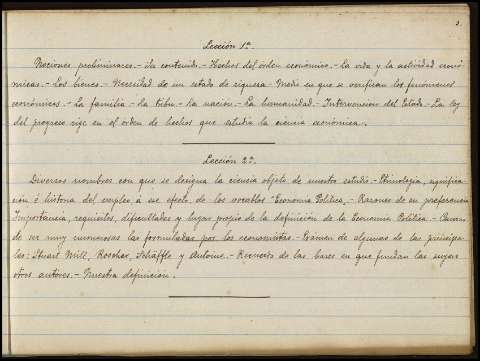 Lección 1ª.
Nociones preliminares.- Su contenido.- Hechos del orden económico.- La vida y la actividad econó-
micas.- Los bienes.- Necesidad de un estado de riqueza.- Medio en que se verifican los fenómenos
económicos.- La familia.- La tribu.- La nación.- La humanidad.- Intervención del Estado.- La ley
del progreso rige en el orden de hechos que estudia la ciencia económica.
Lección 2ª.
Diversos nombres con que se designa la ciencia objeto de nuestro estudio.- Etimología, significa-
ción é historia del empleo á ese efecto de los vocablos "Economía Política".- Razones de su preferencia
Importancia, requisitos, dificultades y lugar propio de la definición de la Economía Política.- Causas
de ser muy numerosas las formuladas por los economistas.- Exámen de algunas de las principa-
les: Stuart Mill, Roscher, Schäffle y Antoine.- Recuerdo de las bases en que fundan las suyas
otros autores.- Nuestra definición.